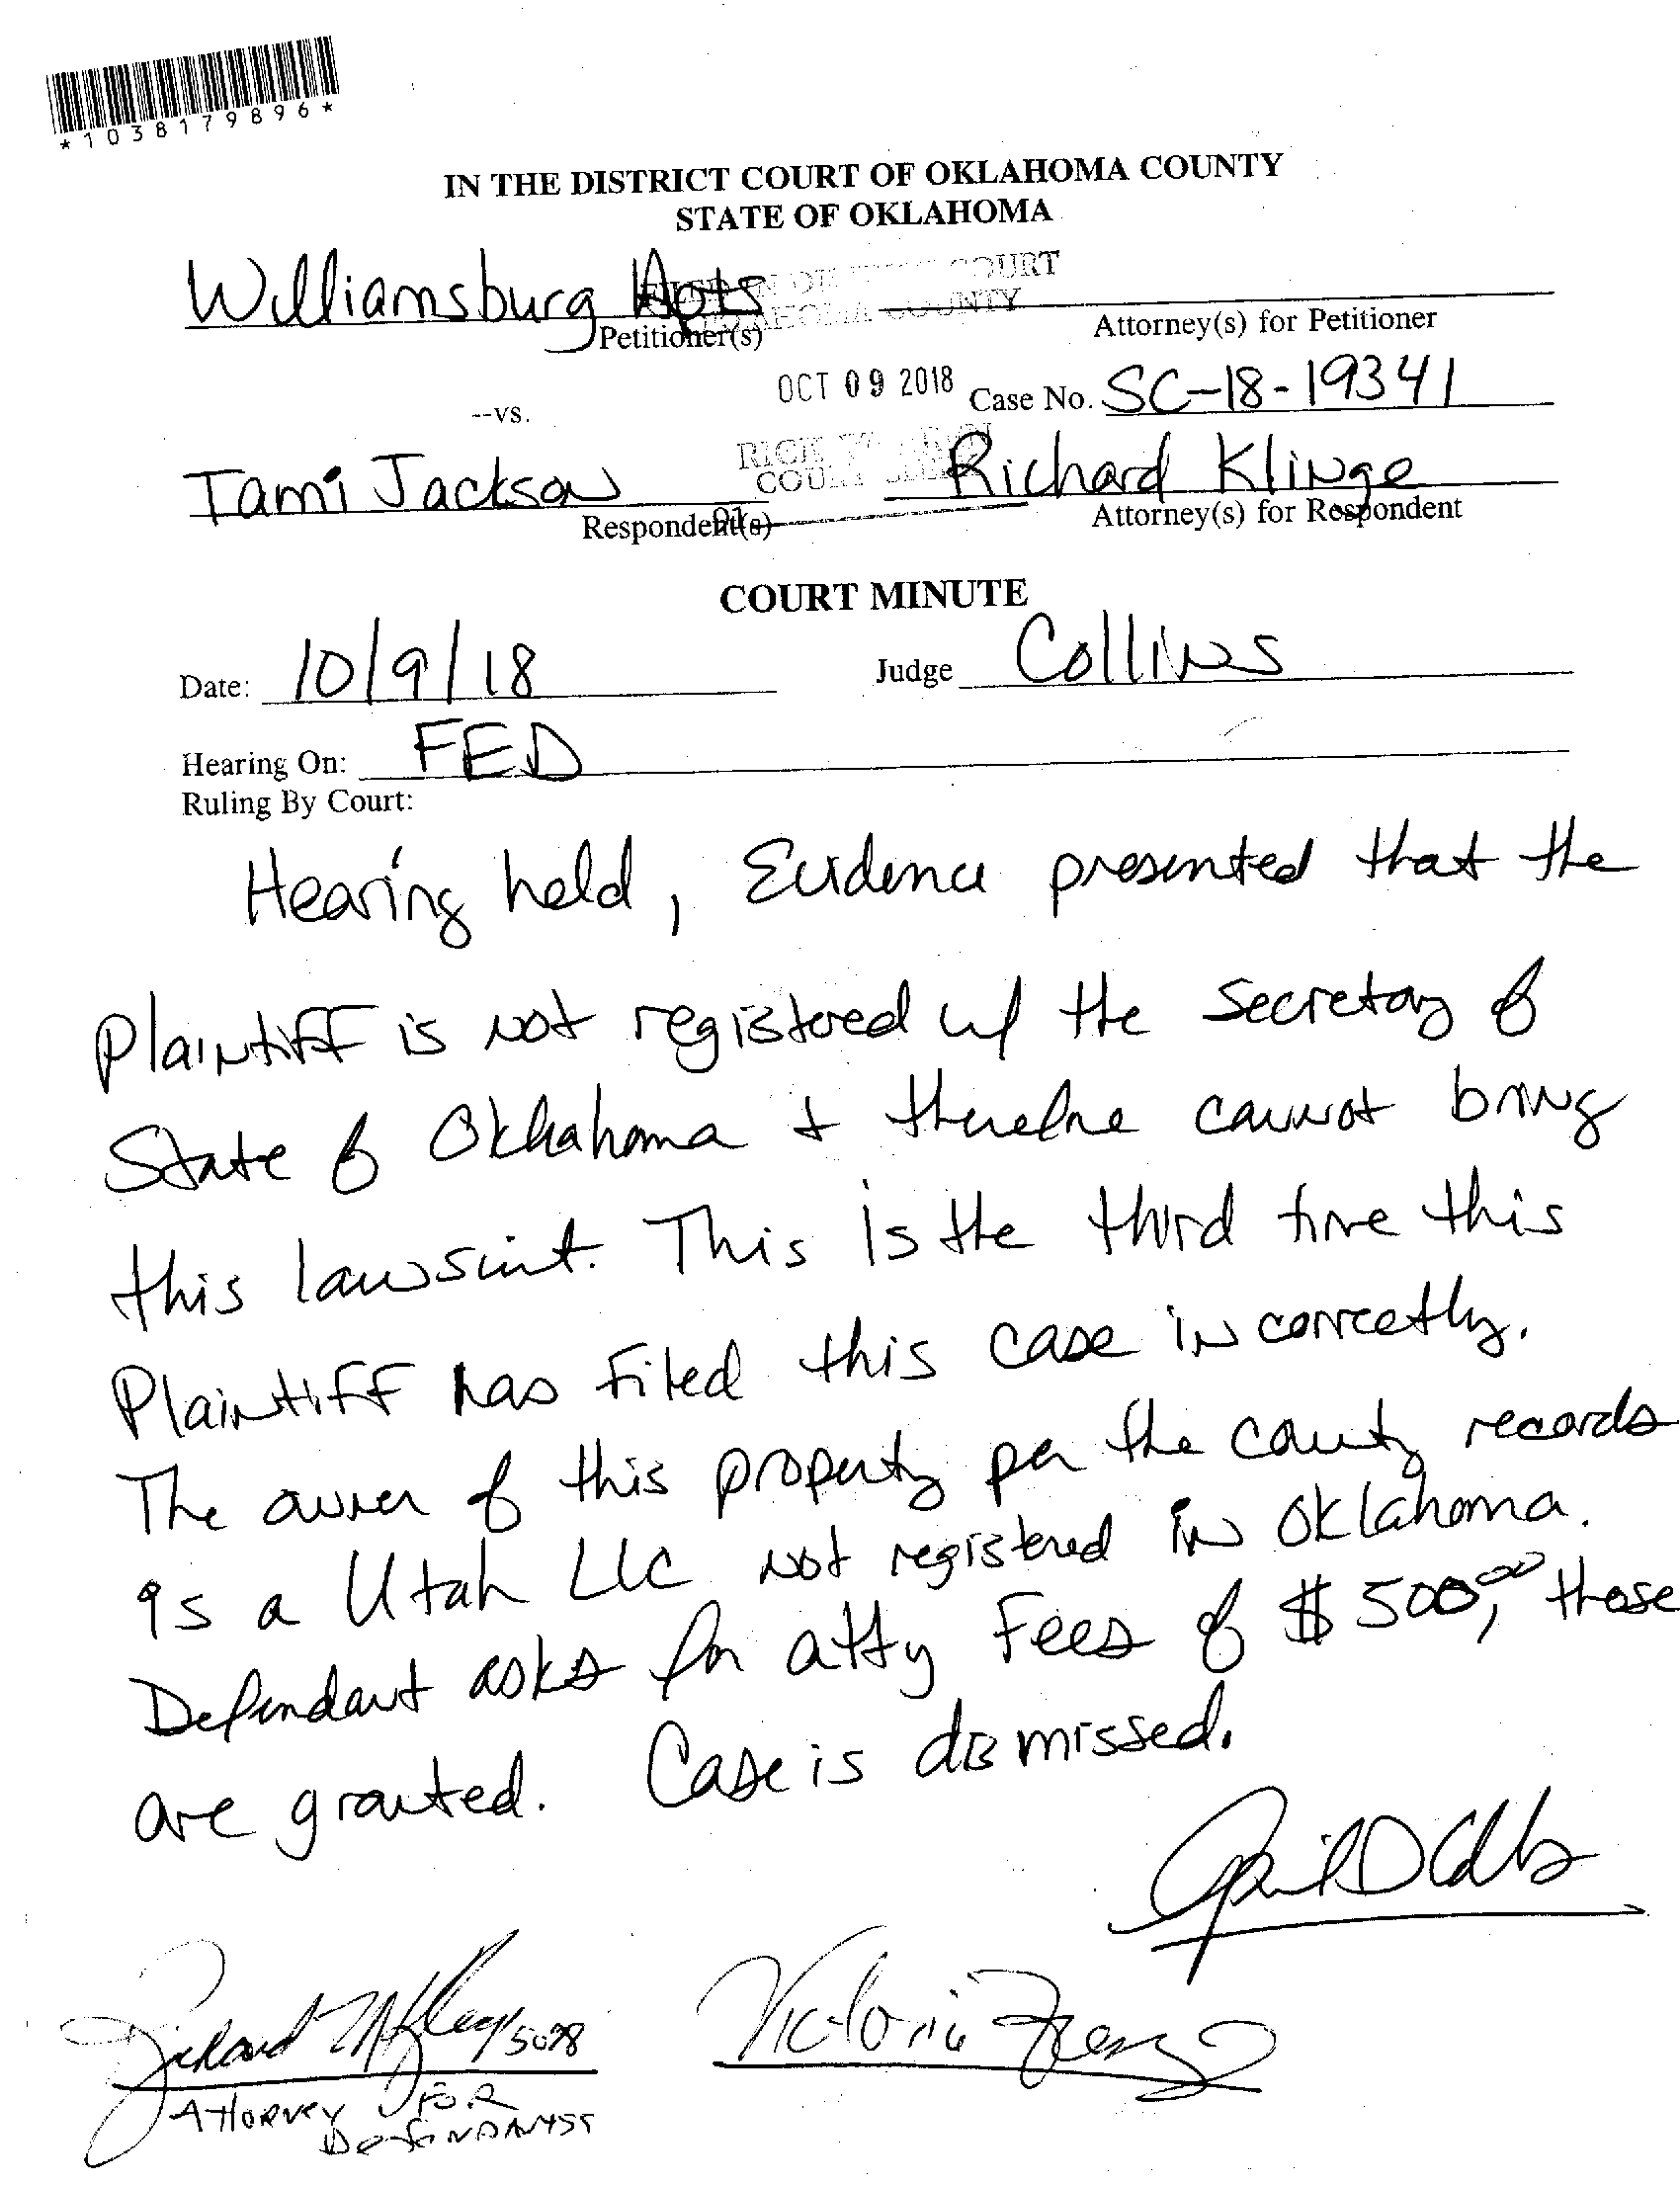 *1038179896*
IN THE DISTRICT COURT OF OKLAHOMA COUNTY
STATE OF OKLAHOMA
Williamsburg Apts
COURT
COUNTY
Petitioner(s)
Attorney(s) for Petitioner
OCT 09 2018
Case No. SC-18-19341
--vs.
RICK
COURT
Tami Jackson
Richard Klinge
Respondent(s)
Attorney(s) for Respondent
COURT MINUTE
Date: 10/9/18
Judge Collins
Hearing On: FED
Ruling By Court:
Hearing held, Evidence presented that the
Plaintiff is not registered w/ the Secretary of
State of Oklahoma + therefore cannot bring
this lawsuit. This is the third time this
Plaintiff has filed this case incorrectly.
The owner of this property per the county records
is a Utah LLC not registered in Oklahoma.
Defendant asks for atty fees of $500,00 those
are granted. Case is dismissed.
5028
Victoria
Attorney FOR